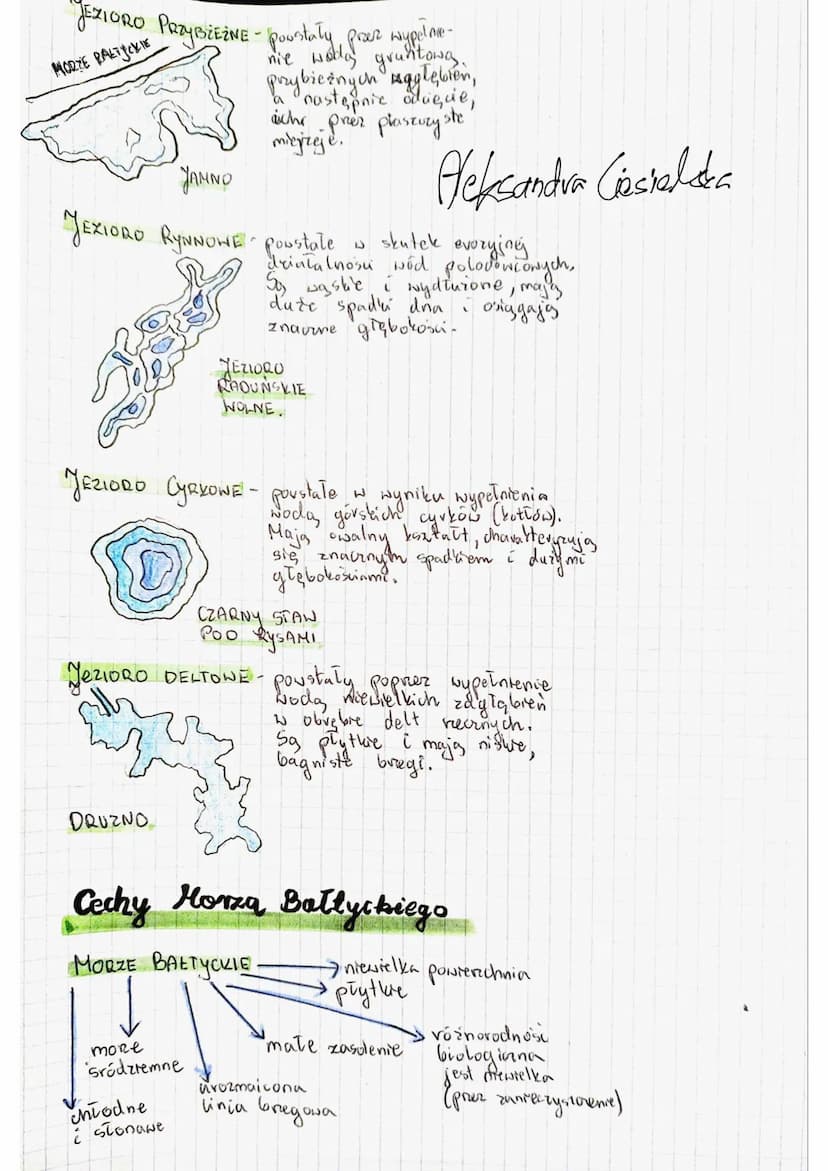 JEZIORO PRZYBIEŻNE - powstały przez wypełnie-
nie wodą gruntową
przybieżnych zagłębień,
a następnie odcięcie,
przez piaszczyste
mierzeje.
MORZE BAŁTYCKIE
JAMNO
Aleksandra Ciesielska
JEZIORO RYNNOWE - powstałe w skutek erozyjnej
działalności wód polodowcowych,
Są wąskie i wydłużone, mają
duże spadki dna i osiągają
znaczne głębokości.
JEZIORO
RADUŃSKIE
WOLNE.
JEZIORO CYRKOWE - powstałe w wyniku wypełnienia
wodą górskich cyrków (kotłów).
Mają owalny kształt, charakteryzują
się znacznym spadkiem i dużymi
głębokościami.
CZARNY STAW
POD RYSAMI
JEZIORO DELTOWE - powstały poprzez wypełnienie
wodą niewielkich zagłębień
w obrębie delt rzecznych.
Są płytkie i mają niskie,
bagniste brzegi.
DRUZNO
Cechy Morza Bałtyckiego
MORZE BAŁTYCKIE
niewielka powierzchnia
płytkie
różnorodność
biologiczna
jest niewielka
(przez zanieczyszczenie)
małe zasolenie
urozmaicona
linia brzegowa
morze
śródziemne
chłodne
i słonawe